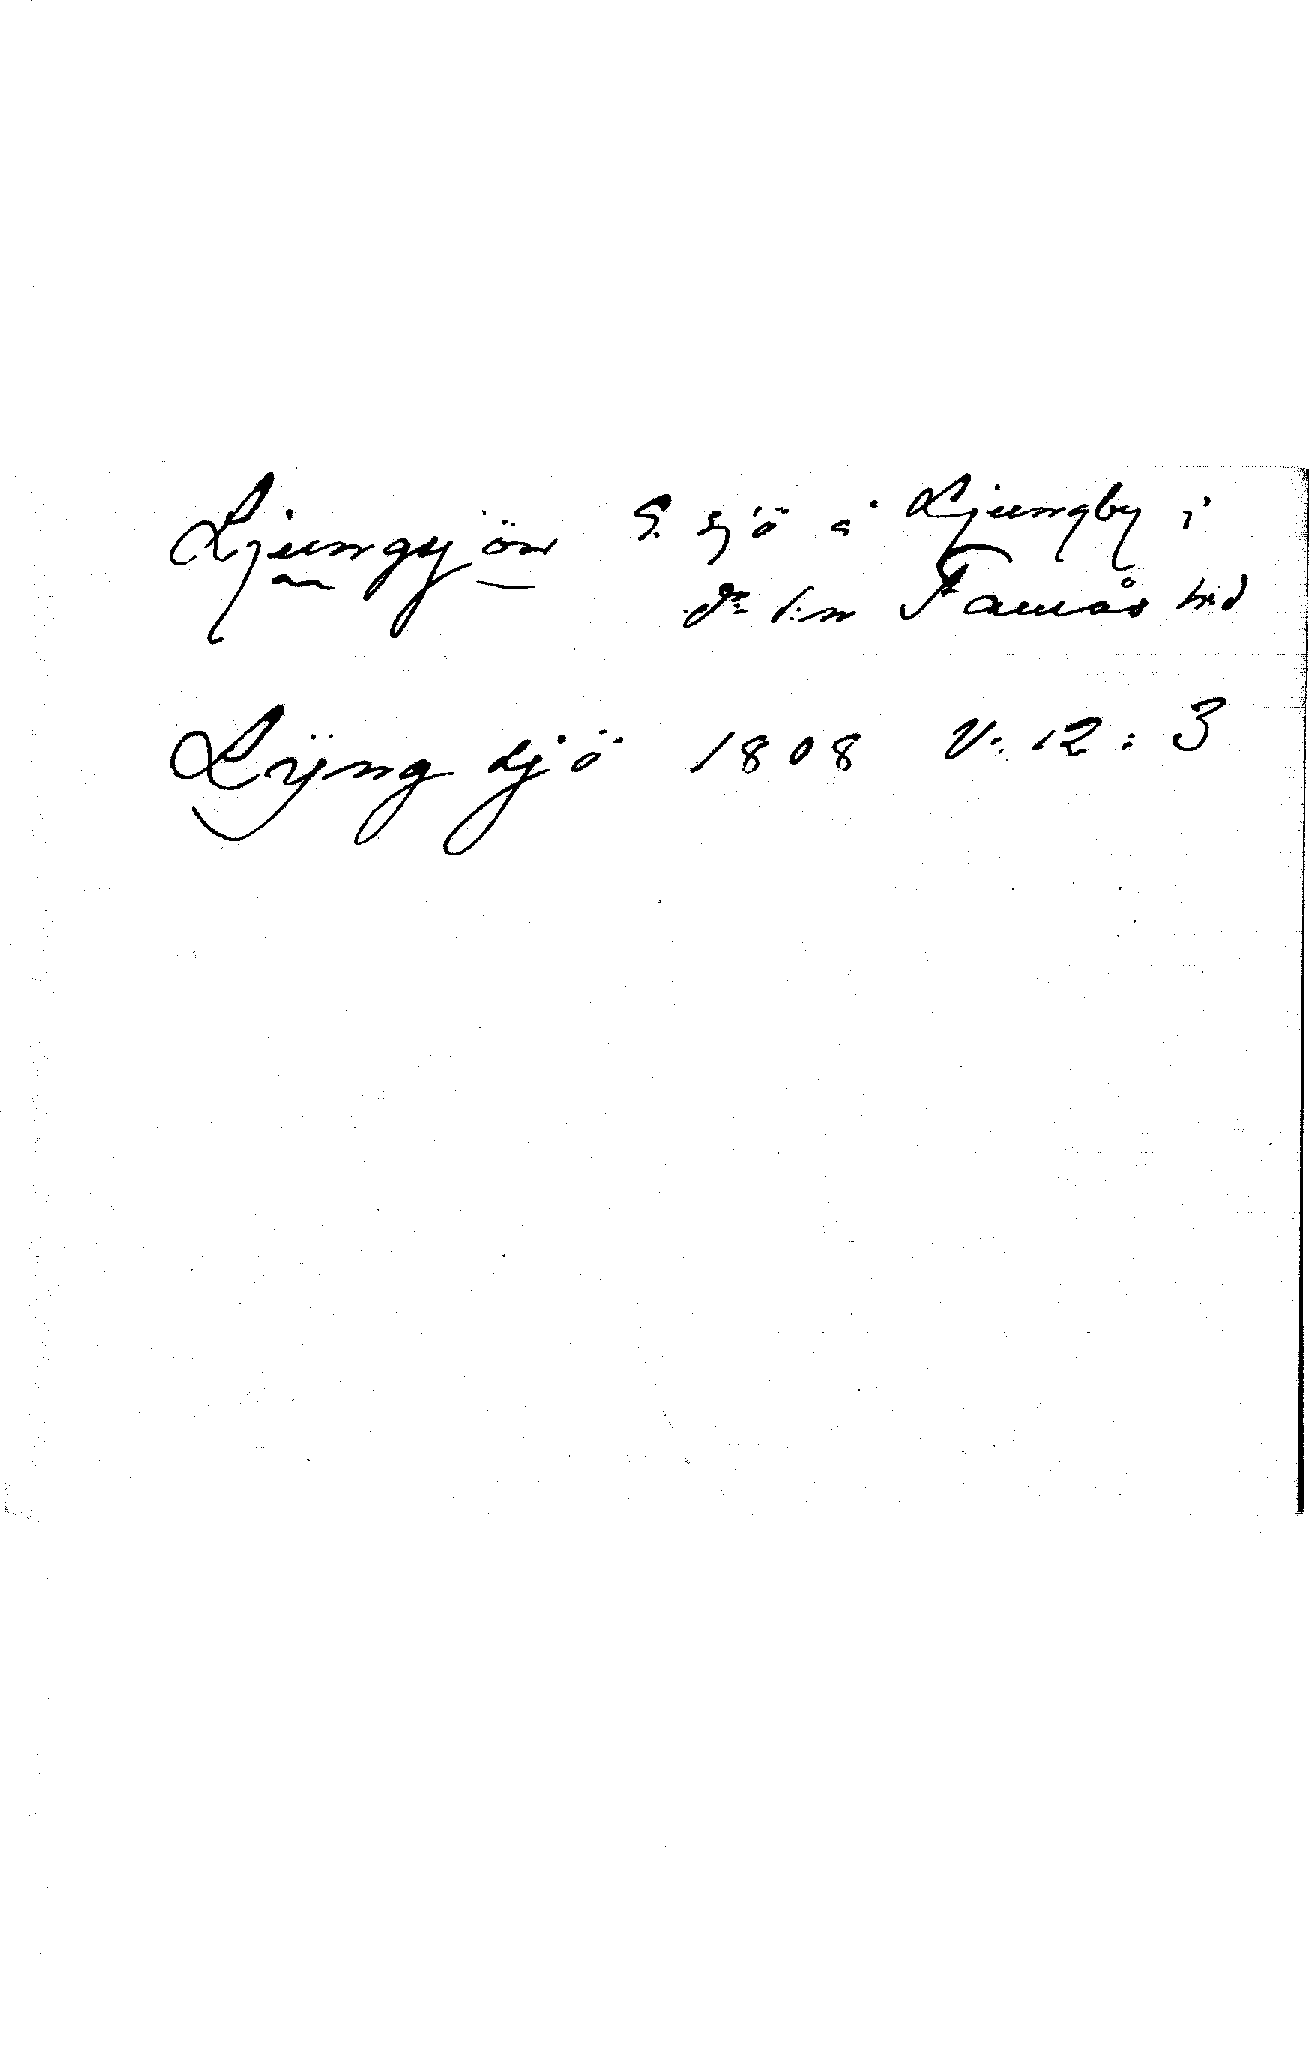 Ljungsjön S. sjö å Ljungby i
do s:n Faurås hrd
Lÿng sjö 1808 V. 12:3